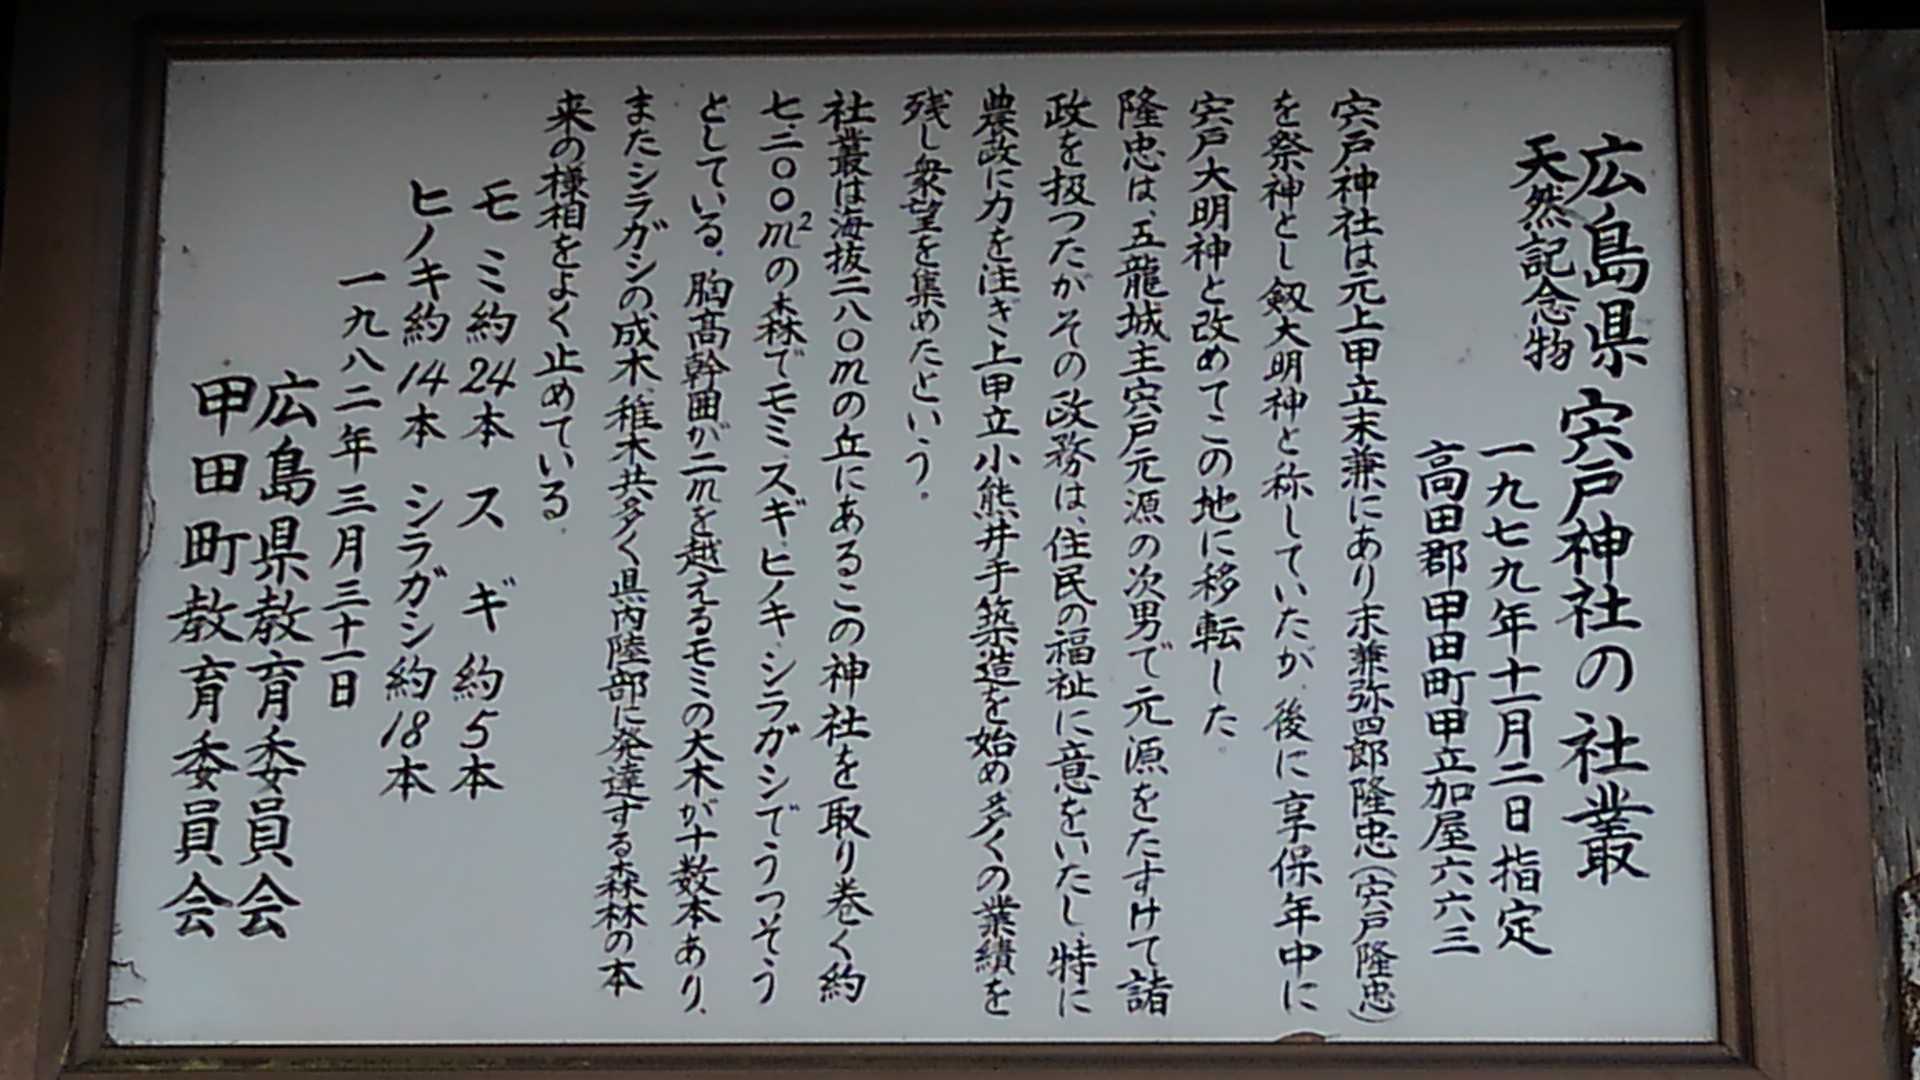 広島県
天然記念物
宍戸神社の社叢
一九七九年十一月二日指定
高田郡甲田町甲立加屋六六三
宍戸神社は元上甲立末兼にあり末兼弥四郎隆忠(宍戸隆忠)
を祭神とし釼大明神と称していたが、後に享保年中に
宍戸大明神と改めてこの地に移転した。
隆忠は、五龍城主宍戸元源の次男で元源をたすけて諸
政を扱つたがその政務は、住民の福祉に意をいたし、特に
農政に力を注ぎ上甲立小熊井手築造を始め多くの業績を
残し衆望を集めたという。
社叢は海抜二八〇mの丘にあるこの神社を取り巻く約
七、二〇〇m²の森でモミ、スギ、ヒノキ、シラガシでうつそう
としている。胸高幹囲が二mを越えるモミの大木が十数本あり、
またシラガシの成木、稚木共多く県内陸部に発達する森林の本
来の様相をよく止めている。
モミ約24本 スギ約5本
ヒノキ約14本 シラガシ約18本
一九八二年三月三十一日
広島県教育委員会
甲田町教育委員会